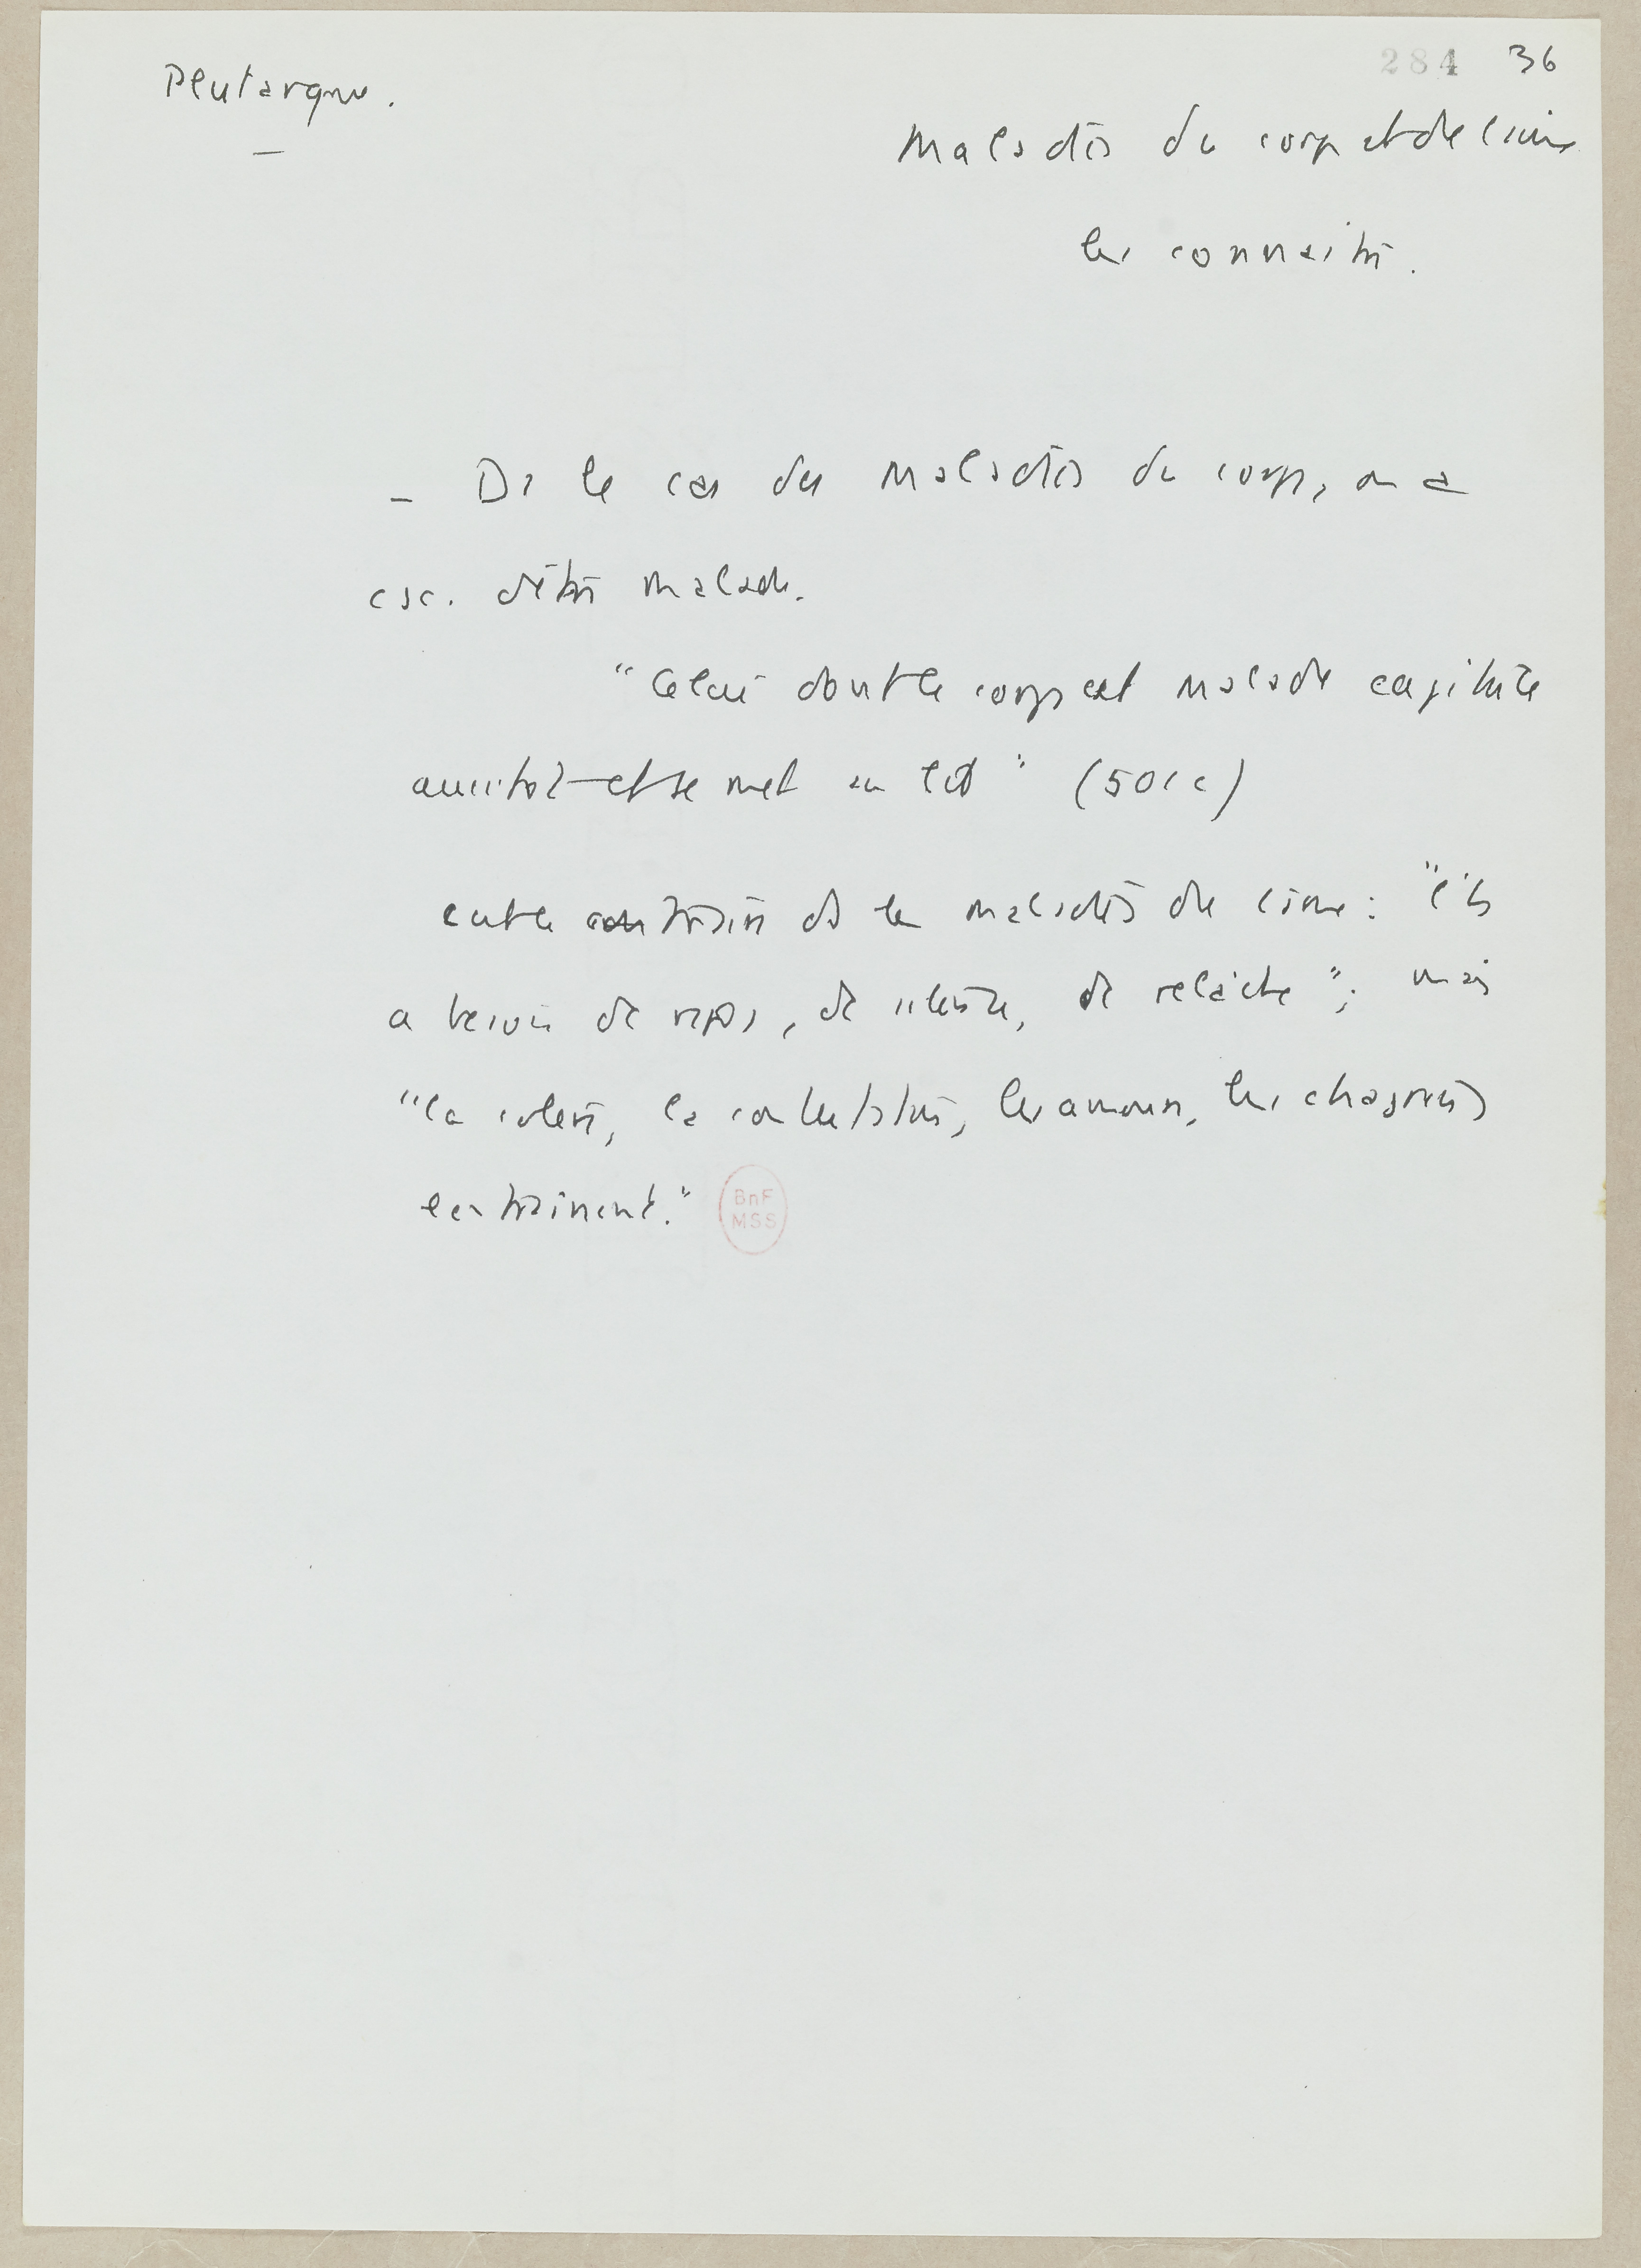 Plutarque.
284 36
Maladies du corps et de l'âme
les connaître.
- Ds le cas des maladies du corps, on a
csc. d'être malade.
"Celui dont le corps est malade capitule
aussitôt et se met au lit" (501 c)
au contraire ds les maladies de l'âme: "l'es
a besoin de repos, de silence, de relâche"; mais
"la colère, la contestation, les amours, les chagrins
entrainent."
BnF
MSS